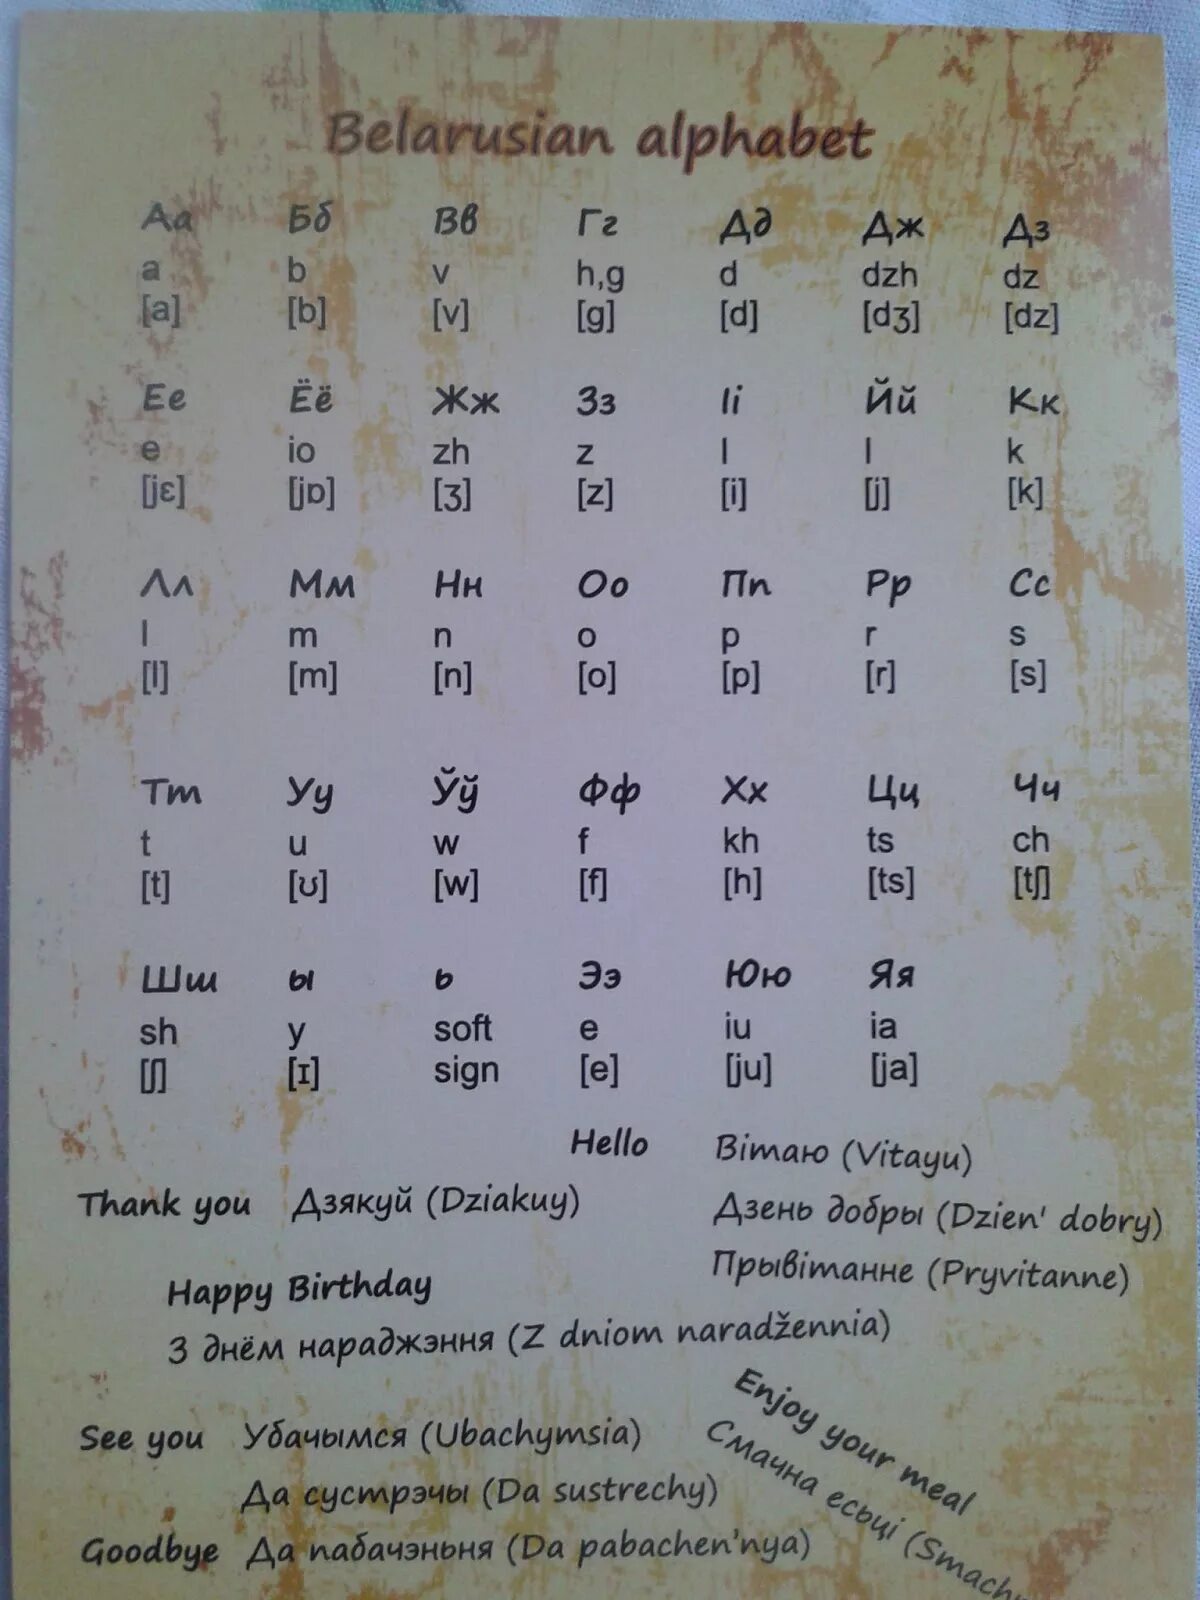 Belarusian alphabet
Аа Бб Вв Гг Дд Дж Дз
a b v h,g d dzh dz
[a] [b] [v] [g] [d] [dʒ] [dz]
Ее Ёё Жж Зз Іі Йй Кк
e io zh z I I k
[jɛ] [jɒ] [ʒ] [z] [i] [j] [k]
Лл Мм Нн Оо Пп Рр Сс
l m n o p r s
[l] [m] [n] [o] [p] [r] [s]
Тт Уу Ўў Фф Хх Цц Чч
t u w f kh ts ch
[t] [ʊ] [w] [f] [h] [ts] [tʃ]
Шш ы ь Ээ Юю Яя
sh y soft e iu ia
[ʃ] [ɪ] sign [e] [ju] [ja]
Hello Вітаю (Vitayu)
Thank you Дзякуй (Dziakuy)
Дзень добры (Dzien' dobry)
Прывітанне (Pryvitanne)
Happy Birthday
З днём нараджэння (Z dniom naradžennia)
See you Убачымся (Ubachymsia)
Да сустрэчы (Da sustrechy)
Goodbye Да пабачэньня (Da pabachen'nya)
Enjoy your meal
Смачна есьці (Smachn